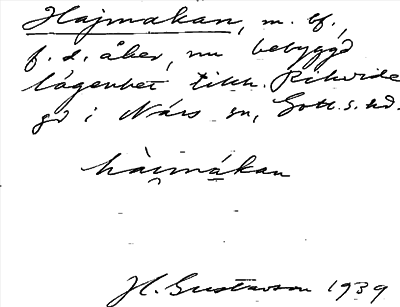 Hajmakan, m. bf.,
f. d. åker, nu bebyggd
lägenhet tillh. Rikvide
gd i Närs sn, Gotl. s. hd.
hàimákan
H. Gustavson 1939